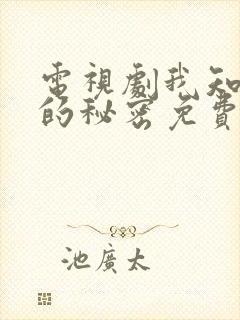 電視劇我知
的秘密免費
池廣太